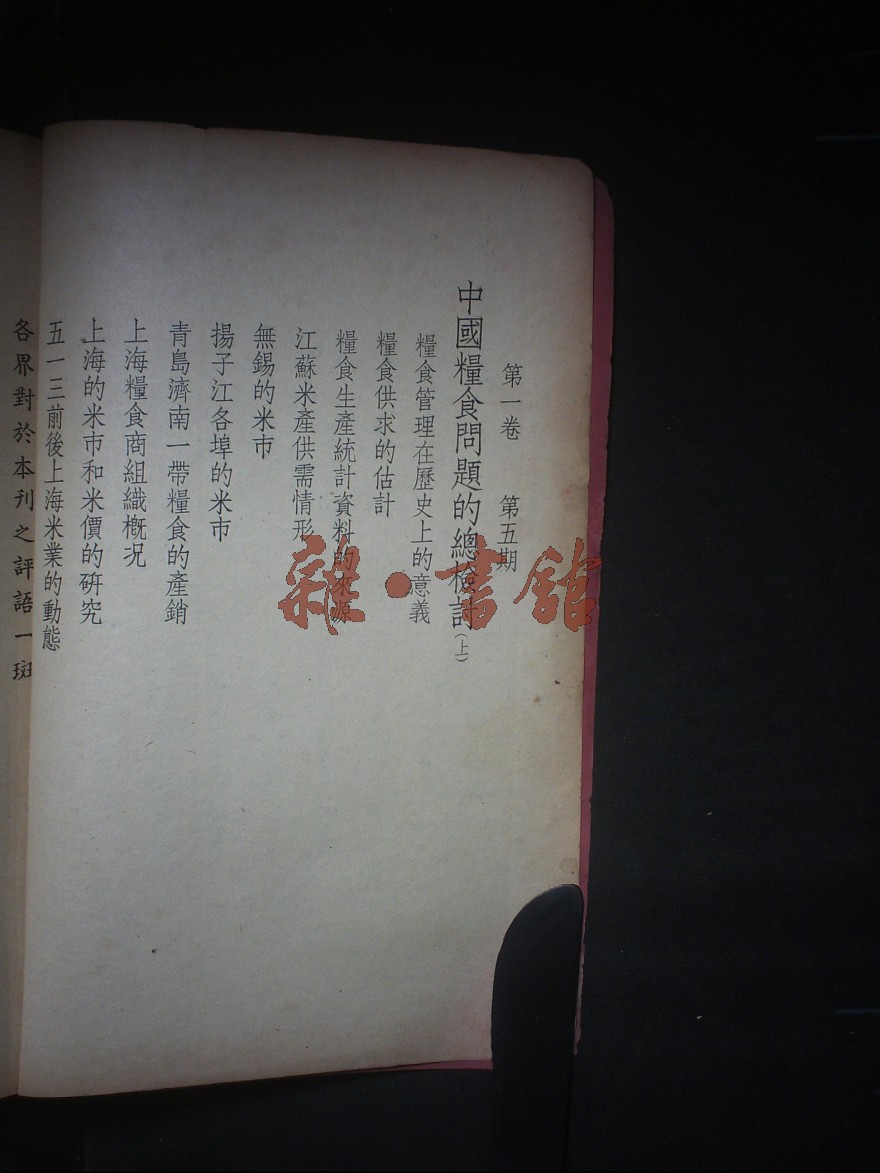 第一卷　第五期
中國糧食問題的總檢討（上）
糧食管理在歷史上的意義
糧食供求的估計
糧食生產統計資料的來源
江蘇米產供需情形
無錫的米市
揚子江各埠的米市
青島濟南一帶糧食的產銷
上海糧食商組織概况
上海的米市和米價的研究
五一三前後上海米業的動態
各界對於本刊之評語一斑
雜·書館